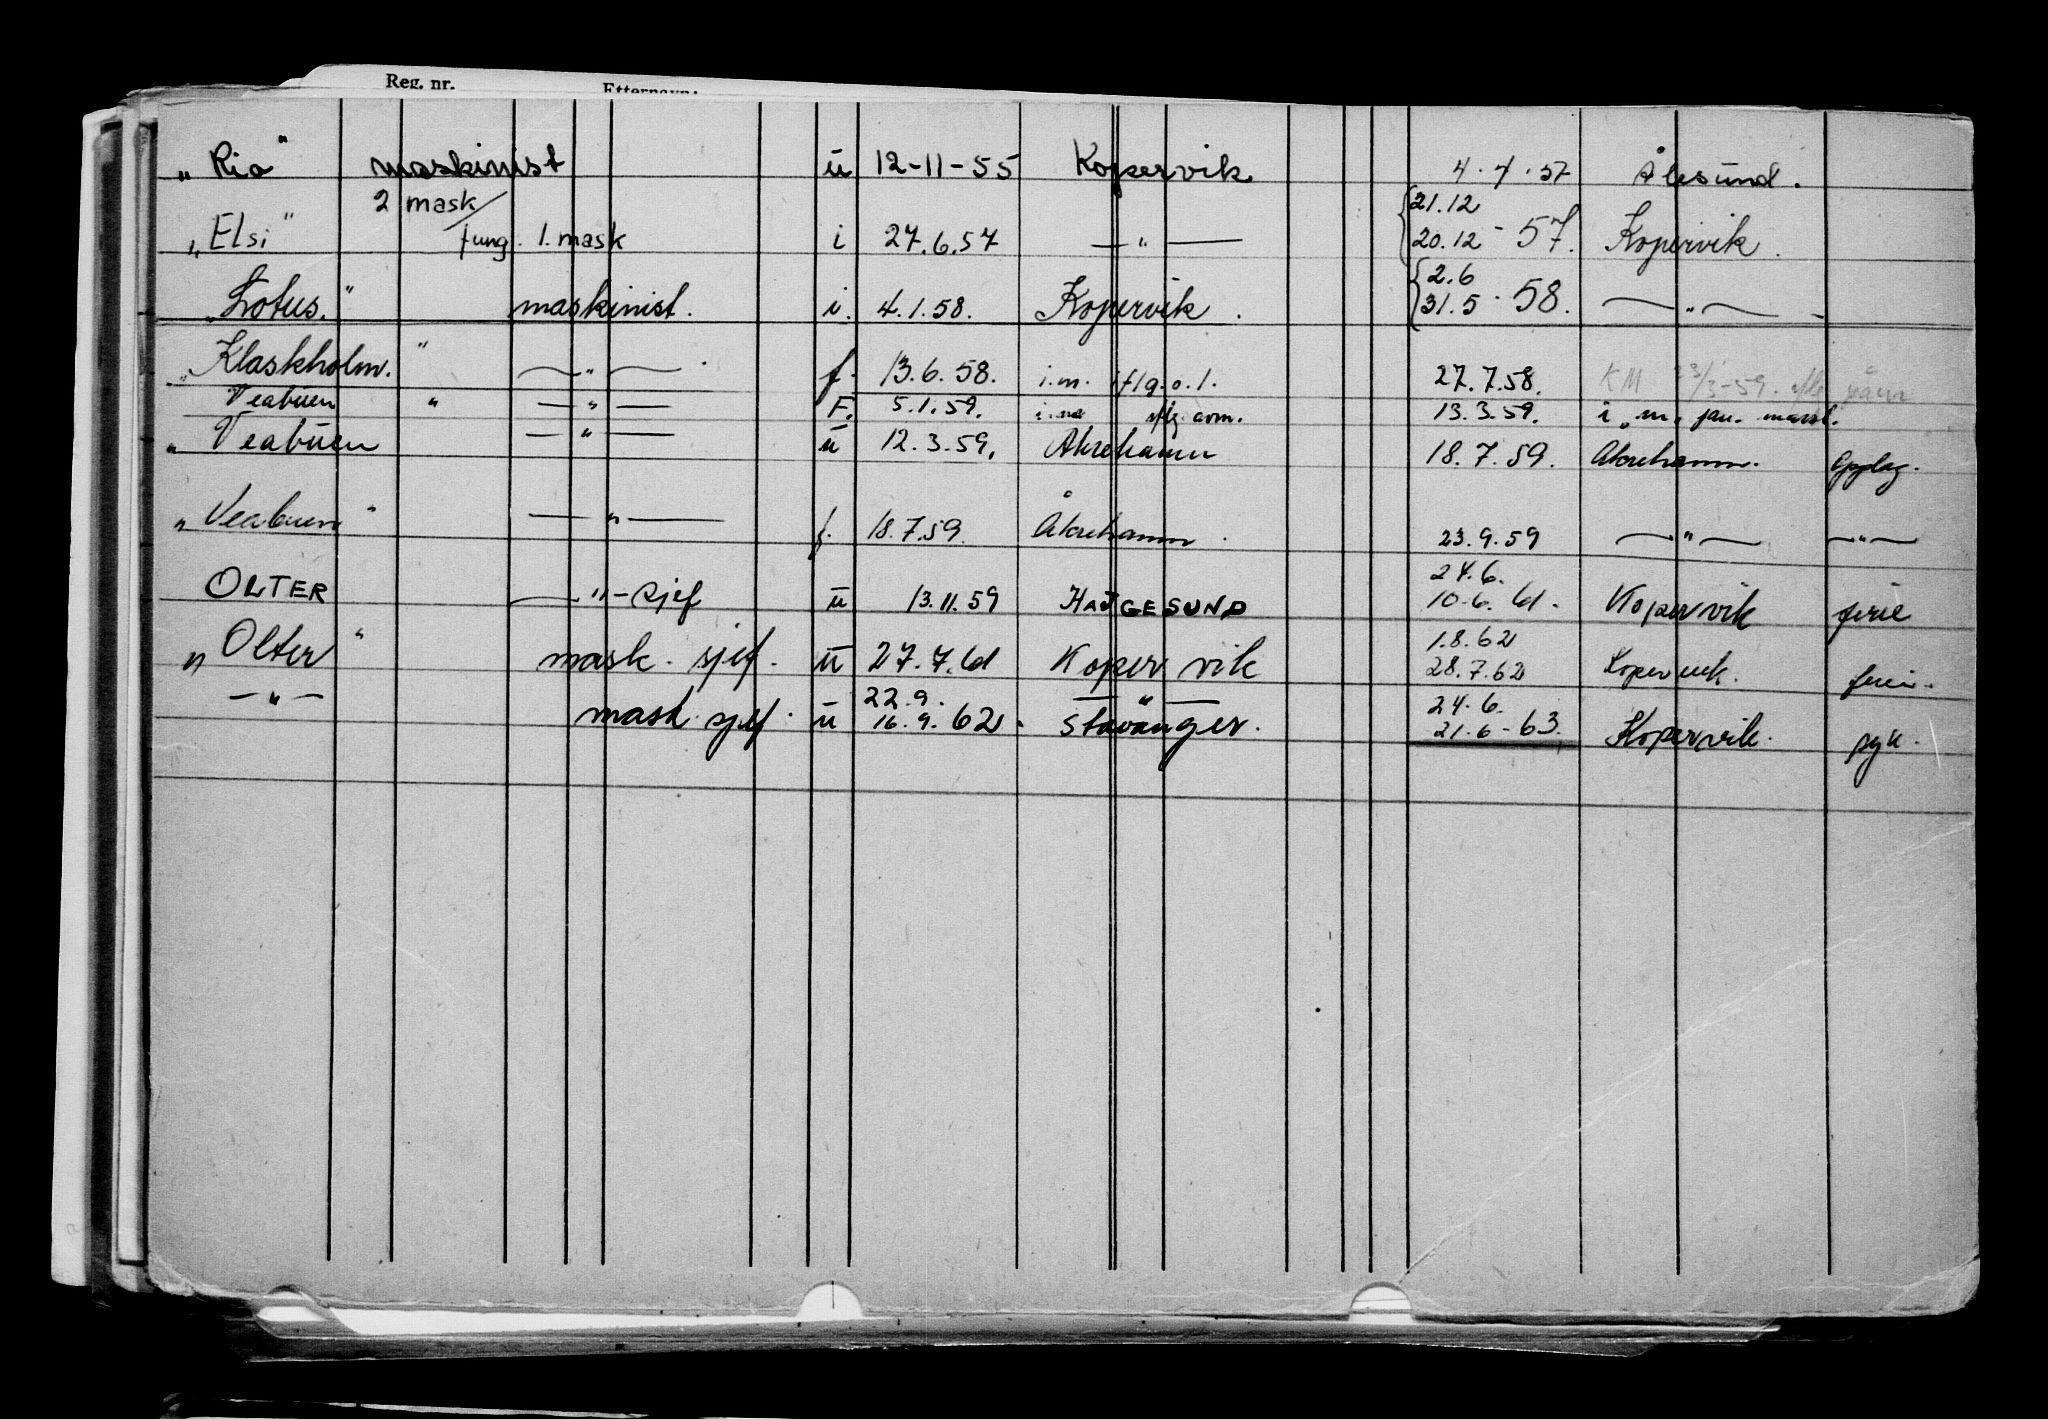 Reg. nr. Etternavn:
"Rio" maskinist ü 12-11-55 Kopervik 4.4.57 Ålesund.
2 mask/ 21.12
"Elsi" fung. 1. mask i 27.6.57 —"— 20.12-57. Kopervik.
2.6
"Lotus." maskinist. i. 4.1.58. Kopervik. 31.5-58. —"—
"Klaskholm." —"— f. 13.6.58. i.m. 27.7.58. KM 23/3-59.
Veabuen " —"— F. 5.1.59. 13.3.59. i. m. jan. mars.
" Veabuen —"— ü 12.3.59. Åkrehamn 18.7.59. Åkrehamn. Opplag.
"Veabuen" —"— f. 18.7.59. Åkrehamn. 23.9.59 —"— —"—
24.6.
OLTER —"—sjef ü 13.11.59 HAUGESUND 10.6.61. Kopervik ferie
1.8.62
"Olter" mask. sjef. ü 27.7.61 Kopervik 28.7.62 Kopervik. ferie.
—"— 22.9. —"— 24.6.
mask. sjef. ü 16.9.62. Stavanger. 21.6-63. Kopervik. syk.